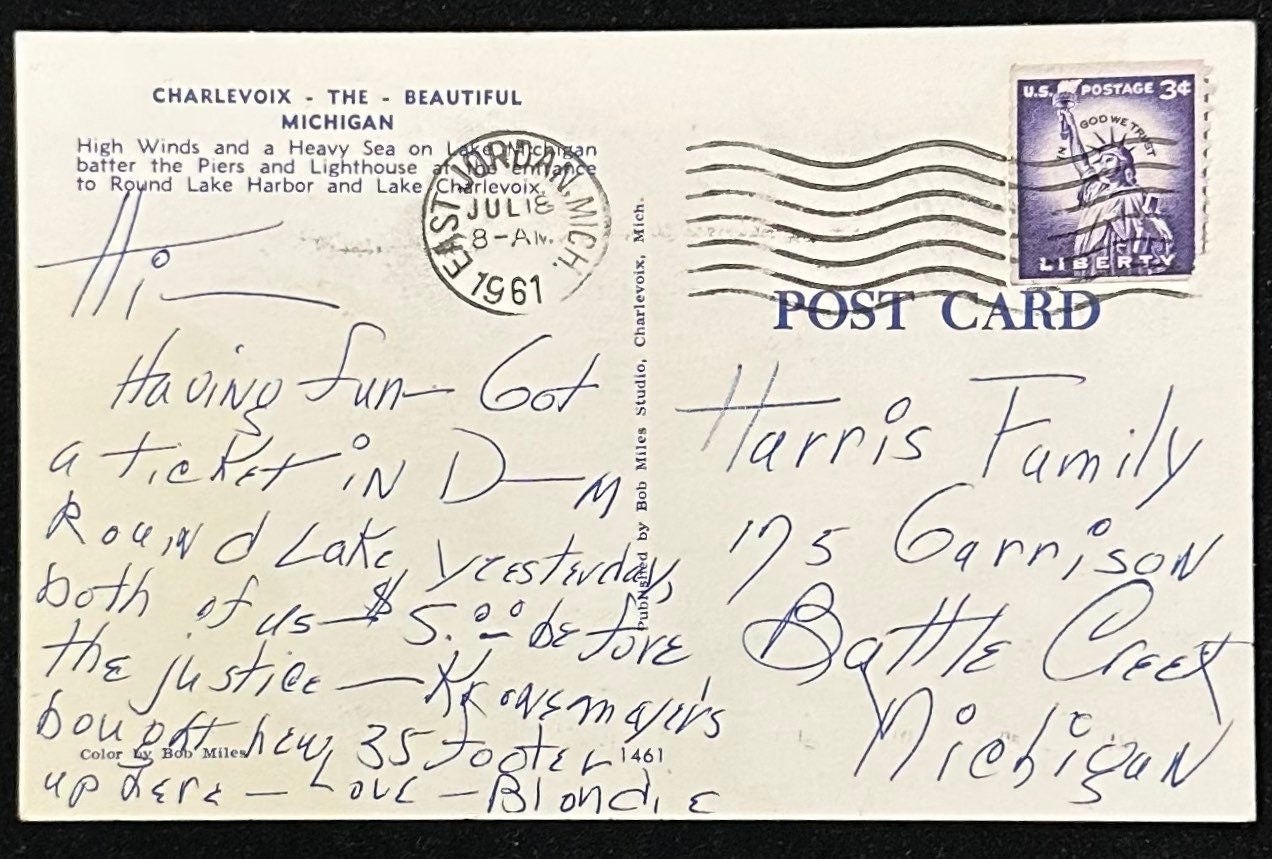 CHARLEVOIX - THE - BEAUTIFUL
MICHIGAN
High Winds and a Heavy Sea on Lake Michigan
batter the Piers and Lighthouse at the entrance
to Round Lake Harbor and Lake Charlevoix.
EAST JORDAN. MICH.
JUL 18
8-AM.
1961
U.S. POSTAGE 3¢
IN GOD WE TRUST
LIBERTY
POST CARD
Hi —
Having fun — Got
a ticket in D—M
Round Lake, yesterday,
both of us — $5.00 before
the justice —
bought new 35 footer
up here — Love — Blondie
Published by Bob Miles Studio, Charlevoix, Mich.
Color by Bob Miles
1461
Harris Family
175 Garrison
Battle Creek
Michigan